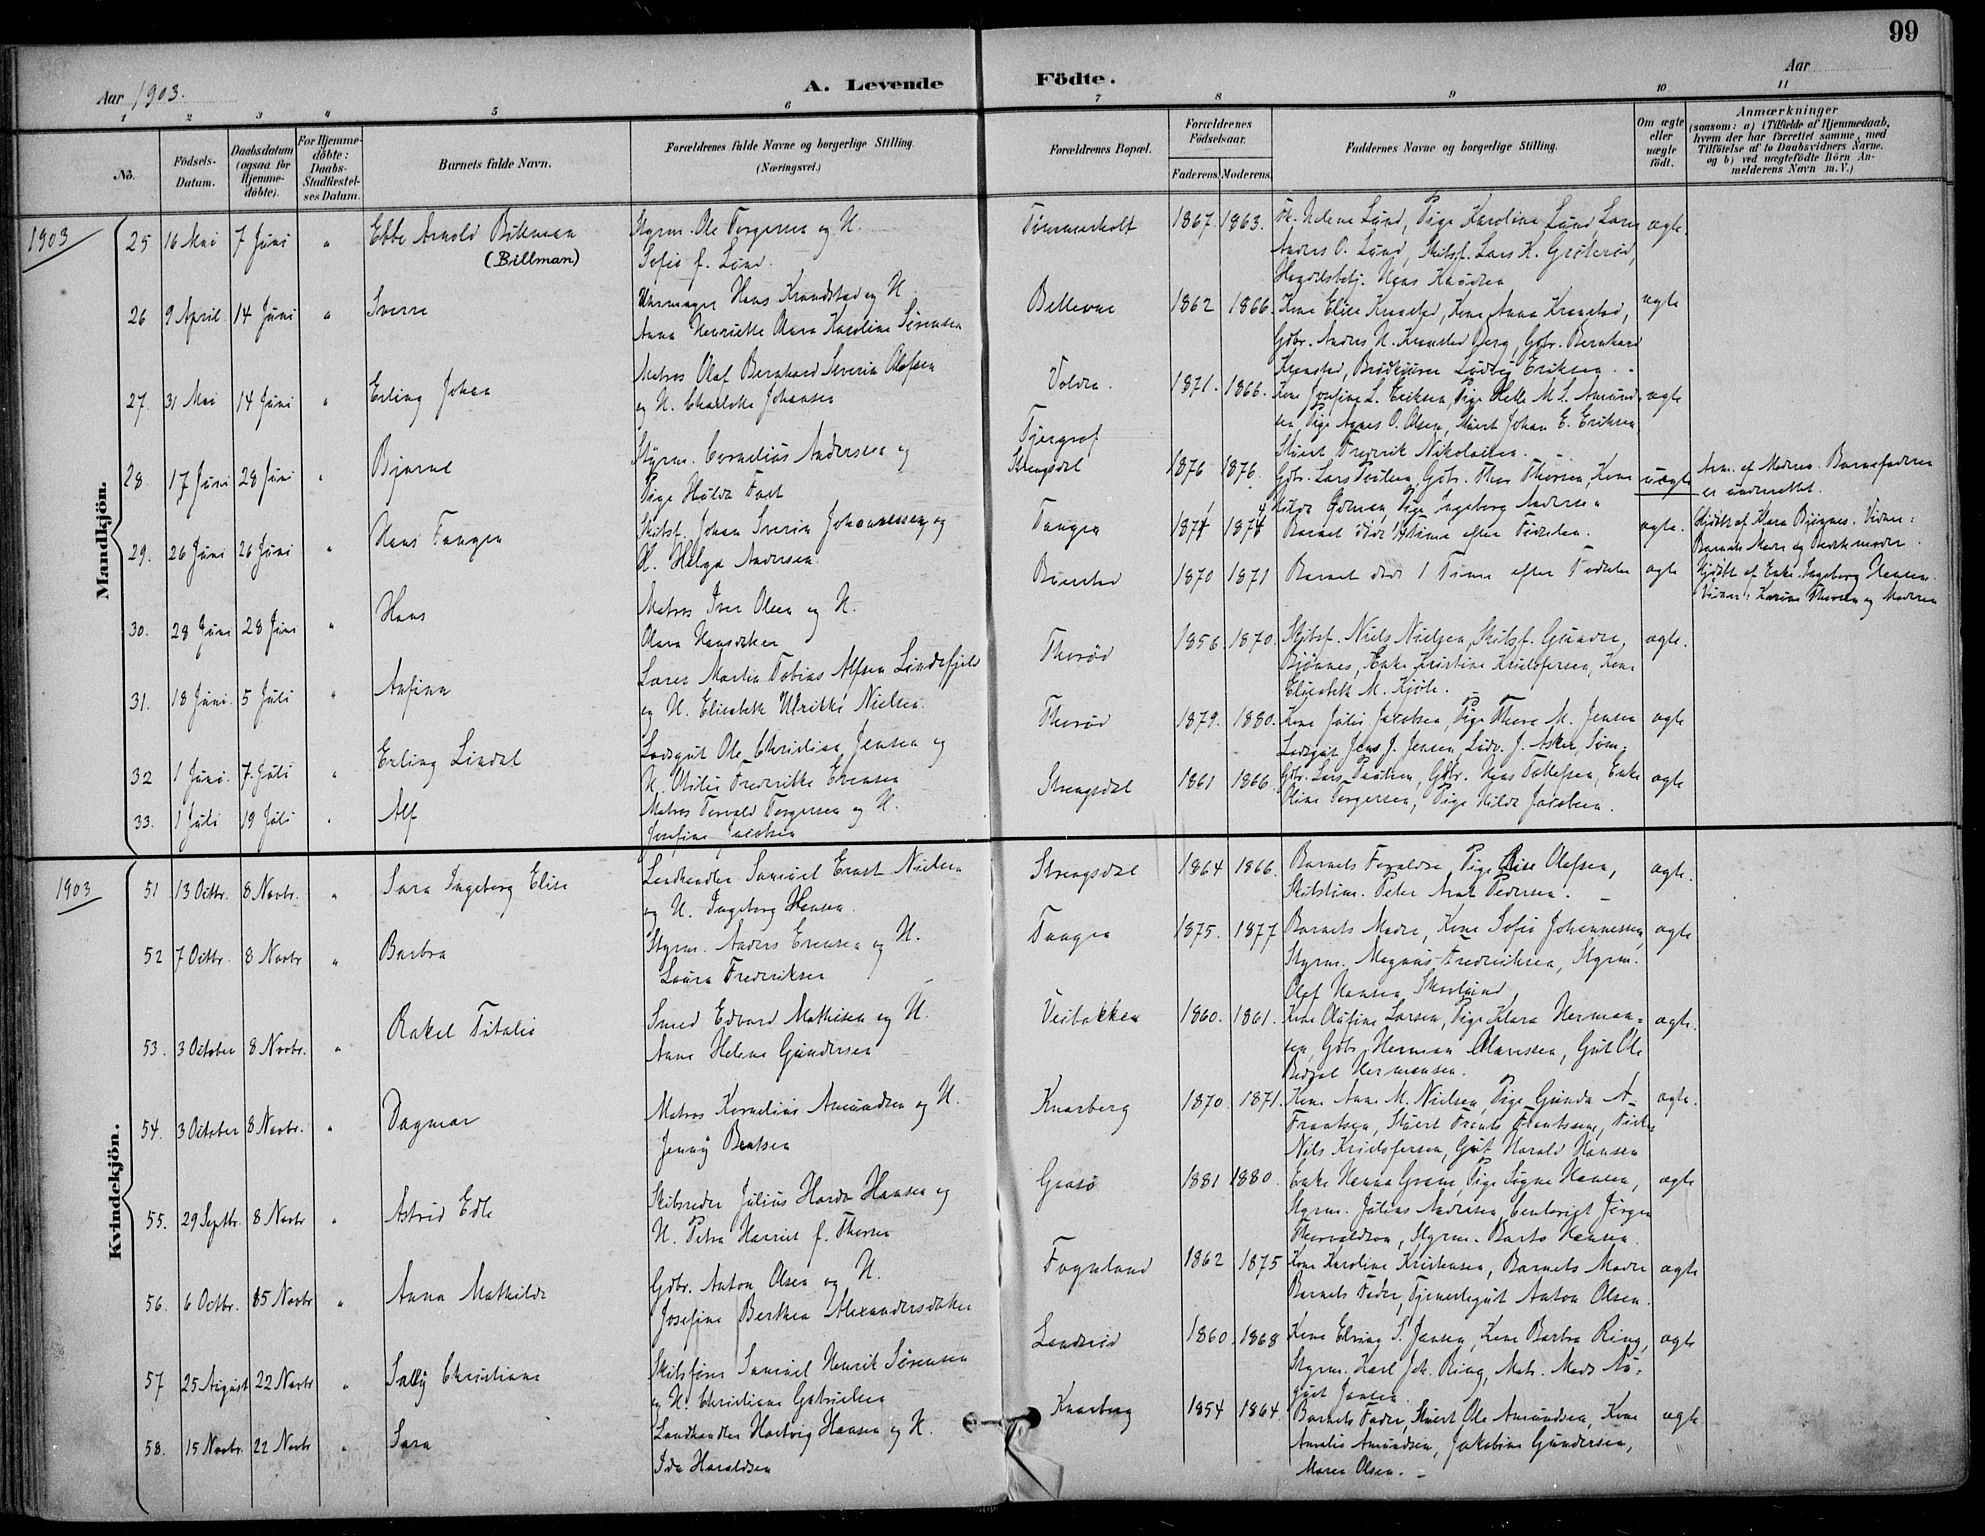 99
Aar 1903.
A. Levende Födte.
Aar
1 2 3 4 5 6 7 8 9 10 11
No.
Födsels-Datum.
Daabsdatum (ogsaa for Hjemme-döbte).
For Hjemme-döbte: Daabs-Stadfæstel-ses Datum.
Barnets fulde Navn.
Forældrenes fulde Navne og borgerlige Stilling. (Næringsvei.)
Forældrenes Bopæl.
Forældrenes Födselsaar.
Faderens. Moderens.
Faddernes Navne og borgerlige Stilling.
Om ægte eller uægte født.
Anmærkninger
(saasom: a) i Tilfælde af Hjemmedaab, hvem der har forrettet samme, med Tilföielse af to Daabsvidners Navne. og b) ved uægtefödte Börn An-melderens Navn m. V.)
Mandkjön.
1903
25 16 Mai 7 Juni " Ebbe Arnold Billman (Billman)
Styrm. Ole Torgersen og H.
Sofie f. Lund.
Tømmerholt 1867. 1863.
Fr. Helene Lund, Pige Karoline Lund, Lærer
Anders O. Lund, Skibsf. Lars K. Grøterød,
Handelsbetj. Hans Knudsen
ægte.
26 9 April 14 Juni " Sverre
Uhrmager Hans Kranstad og H.
Anna Henriette Olava Karoline Sørensen
Bellevue 1862 1866.
Kone Elise Kranstad, Kone Anna Kranstad,
Gdbr. Anders H. Kranstad Berg, Gdbr. Bernhard
Kranstad, Ludvig Eriksen.
ægte
27. 31 Mai 14 Juni " Erling Johan
Matros Olaf Bernhard Severin Olafsen
og H. Charlotte Johansen
Volden. 1871. 1866.
Kone Josefine L. Eriksen, Pige Helle M. S. Amund-
sen, Pige Agnes O. Olsen, Stuert Johan E. Eriksen
Stuert Fredrik Nikolaisen.
ægte
28. 17 Juni 28 Juni " Bjarne
Styrm. Cornelius Andersen og
Pige Hulda Fost
Strengsdal 1876 1876.
Gdbr. Lars Poulsen, Gdbr. Thor Thorsen, Kone
Hilda Pige Ingeborg Andersen
uægte
Anm. af Moderen. Barnefaderen
er underrettet.
29. 26 Juni 26 Juni " Hans Tangen
Skibsf. Johan Sverin Johannessen og
H. Helga Andersen.
Tangen 1871 1874
Barnet døde Time efter Fødselen.
ægte.
Hjdøbt af Klara Bjønnes. Vidner:
Barnets Moder og Bedstemoder.
30. 28 Juni 28 Juni " Hans
Matros Iver Olsen og H.
Olava Hansdatter
1870 1871
Barnet døde 1 Time efter Fødselen
ægte
Hjdøbt af Enke Ingeborg Hansen.
Vidner: Karine Thorsen og Moderen
31. 18 Juni 5 Juli " Anfinn
Lærer Martin Tobias Alfsen Lindefjeld
og H. Elisabeth Ulrikke Nielsen.
Thorød 1856 1870.
Skibsf. Niels Nielsen, Skibsf. Gunder
Bjønnes, Enke Kristine Kristofersen, Kone
Elisabeth M. Kjøle.
ægte.
32 1 Juni. 7. Juli " Erling Lindal
Lodsgut Ole Christian Jensen og
H. Otilie Fredrikke Evensen
Thorød 1879. 1880.
Kone Julie Jacobsen, Pige Thora M. Jensen
Lodsgut Jens J. Jensen, Ludv. J. Asker, Søm.
ægte
33. 1 Juli 19 Juli " Alf
Matros Torvald Torgersen og H.
Josefine Jacobsen
Strengsdal 1861 1866.
Gdbr. Lars Poulsen, Gdbr. Hans Tollefsen, Enke
Oline Torgersen, Pige Hilda Jacobsen.
ægte
Kvindekjön.
1903
51 13 Octbr. 8 Novbr. " Sara Ingeborg Elise
Landhandler Samuel Ernst Nielsen
og H. Ingeborg Hansen.
Strengsdal 1864 1866.
Barnets Forældre, Pige Olefsen,
Skibstøm. Peter Arnt Pedersen.
ægte.
52 7 Octbr. 8 Novbr " Barbra
Styrm. Anders Evensen og H.
Laura Fredriksen
Tangen 1875. 1877
Barnets Moder, Kone Sofie Johannessen,
Styrm. Magnus Fredriksen, Styrm.
Olaf Hansen
ægte
53. 3 October 8 Novbr. " Rakel Titalie
Smed Edvard Mathisen og H.
Anne Helene Gundersen
Veibakken 1860. 1861.
Kone Olufine Larsen, Pige Klara Herman-
sen, Gdbr. Herman Clausen, Gut Ole
Hermansen.
ægte.
54. 3 October 8 Novbr. " Dagmar
Matros Kornelius Amundsen og H.
Jenny Berntsen
Knarberg 1870. 1871.
Kone Anne M. Nielsen, Pige Gunda A.
Frantsen, Stuert Frants Frantssen,
Nils Kristofersen, Gut Harald Hansen
ægte.
55. 29 Septbr. 8 Novbr " Astrid Edle
Skibsreder Julius Horda Hansen og
H. Petra Harriet f. Thorsen
Grasø 1881 1880.
Enke Hanna Gram, Pige Signe Hansen,
Styrm. Julius Andresen, Jørgen
Thorvaldson, Styrm. Barto Hansen.
ægte
56. 6 Octbr. 15 Novbr " Anna Mathilde
Gdbr. Anton Olsen og H.
Josefine Berthea Alexandersdatter
Fogneland 1862 1875
Kone Karoline Kristensen, Barnets Moder
Barnets Fader, Tjenestegut Anton Olsen.
ægte
57 25 August 22 Novbr " Sally Christiane
Skibsfører Samuel Henrik Sørensen
og H. Christiane Gabrielsen
1860 1868
Kone Elvine S. Jansen, Kone Barbra Ring,
Styrm. Karl Joh. Ring, Matr. Mads Au-
gust Jansen.
ægte
58. 15 Novbr. 22 Novbr " Sara
Landhandler Hartvig Hansen og H.
Ida Haraldsen
Knarberg 1854 1864.
Barnets Fader, Stuert Ole Amundsen, Kone
Amalie Amundsen, Jakobine Gundersen,
Maren Olsen.
ægte